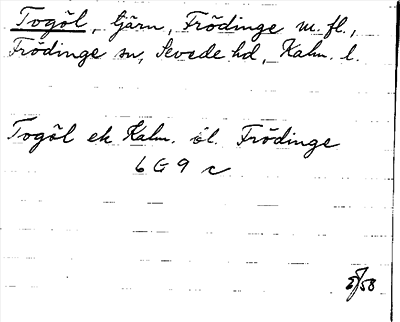 Togöl, tjärn, Frödinge m. fl.,
Frödinge sn, Sevede hd, Kalm. l.
Togöl ek Kalm. öl. Frödinge
6 G 9 c
5/58